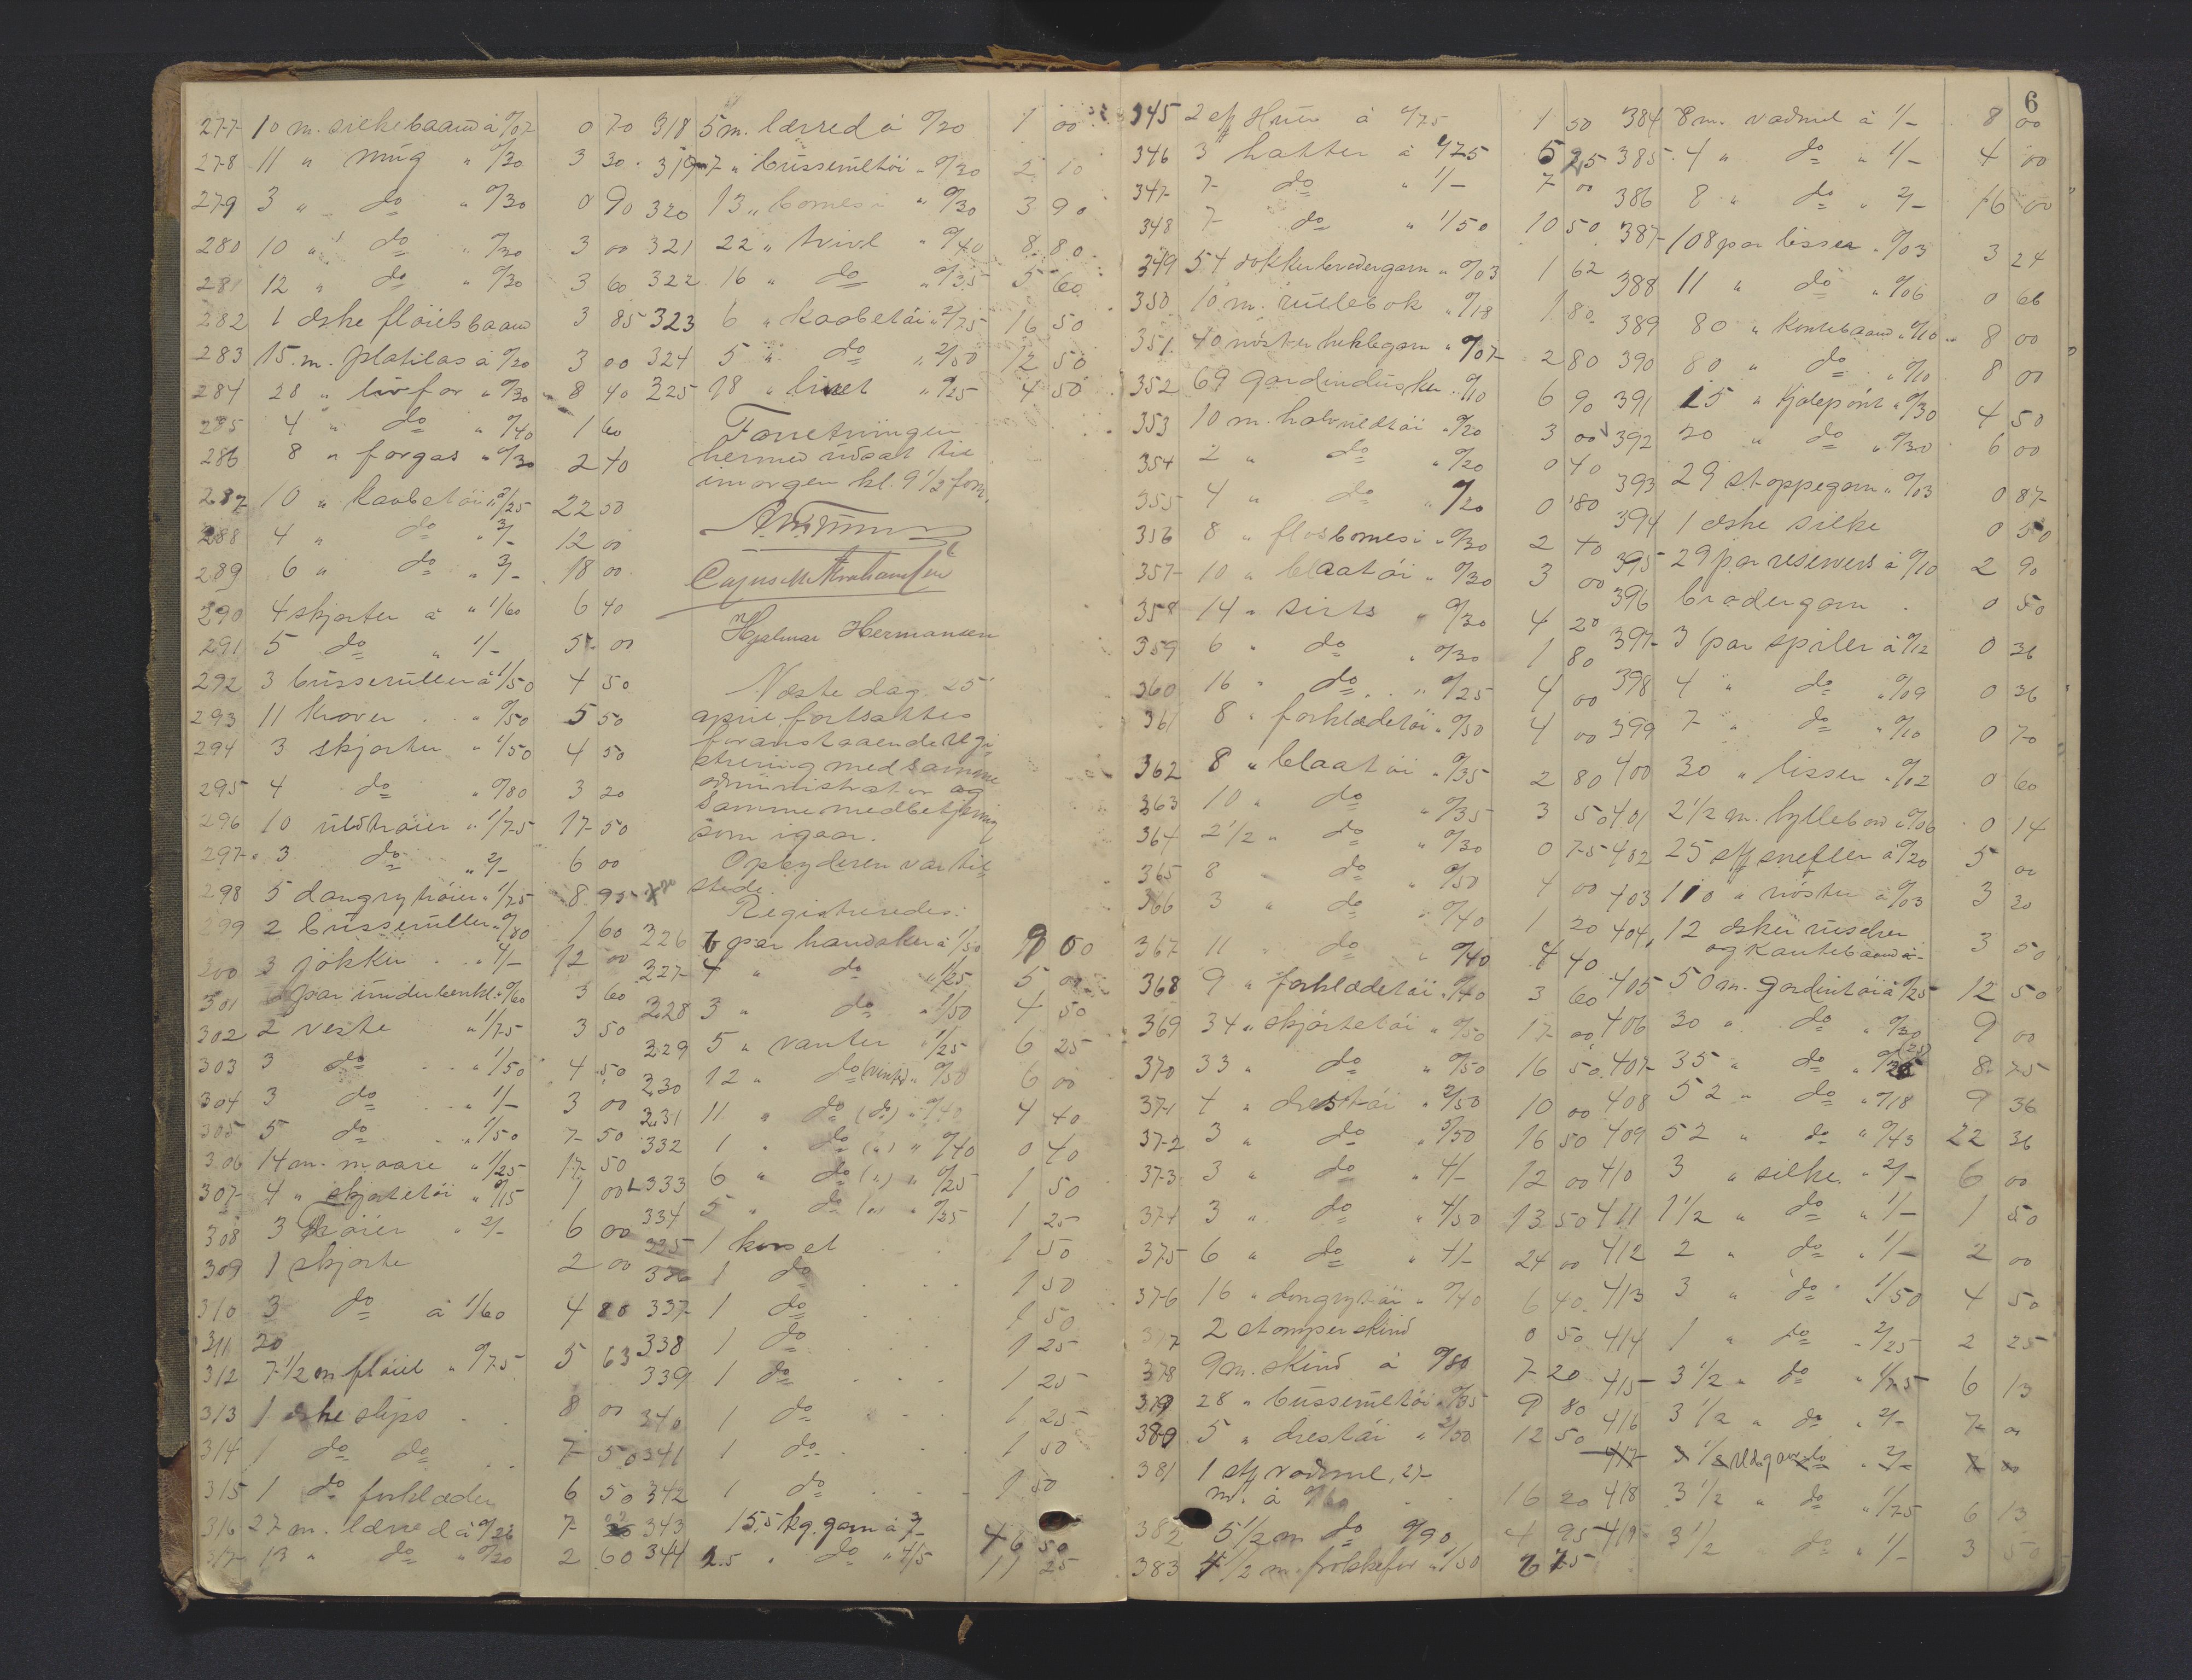 277 10 m. silkebaand à 0/07 0 70
278 11 " mug " 0/30 3 30
279 3 " do " 0/30 0 90
280 10 " do " 0/30 3 00
281 12 " do " 0/30 3 60
282 1 æske fløielsbaand 3 85
283 15. m. platilas à 0/20 3 00
284 28 " livfor " 0/30 8 40
285 4 " do " 0/40 1 60
286 8 " forgas " 0/30 2 40
287 10 " kaabetøi " 2/25 22 50
288 4 " do " 3/- 12 00
289 6 " do " 3/- 18 00
290 4 skjorter à " 1/60 6 40
291 5 do " 1/- 5 00
292 3 busseruller à 1/50 4 50
293 11 kraver " 0/50 5 50
294 3 skjorter " 1/50 4 50
295 4 do " 0/80 3 20
296 10 uldtrøier " 1/75 17 50
297 3 do " 2/- 6 00
298 5 dongrytrøier " 1/75 8 95
299 2 busseruller " 0/80 1 60
300 3 jakker " 4/- 12 00
301 6 par underbenkl. " 0/60 3 60
302 2 veste " 1/75 3 50
303 3 do " 1/50 4 50
304 3 do " 1/- 3 00
305 5 do " 1/50 7 50
306 14 m. moare " 1/25 17 50
307 4 " skjortetøi " 0/15 1 00
308 3 trøier " 2/- 6 00
309 1 skjorte 2 00
310 3 do à 1/60 4 80
311 20
312 7 1/2 m fløiel " 0/75 5 63
313 1 æske slips 8 00
314 1 do do 7 50
315 1 do forklæder 6 50
316 27 m. lærred à 0/26 7 02
317 13 " do " 0/20 2 60
318 5 m. lærred à 0/20 1 00
319 7 " busserultøi " 0/30 2 10
320 13 " bomesi " 0/30 3 90
321 22 " tvivl " 0/40 8 80
322 16 " do " 0/35 5 60
323 6 " kaabetøi " 2/75 16 50
324 5 " do " 2/50 12 50
325 18 " livet " 0/25 4 50
Forretningen
hermed udsat til
imorgen kl. 9 1/2 form.
Hjalmar Hermansen
Næste dag 25
april fortsattes
foranstaaende regi-
strering med samme
administrator og
samme medbetjening
som igaar.
Opbyderen var til-
stede.
Registreredes:
326 6 par handsker à 1/50 9 00
327 4 " do " 1/25 5 00
328 3 " do " 1/50 4 50
329 5 " vanter " 1/25 6 25
330 12 " do " 0/50 6 00
331 11 " do (do) " 0/40 4 40
332 1 " do (") " 0/40 0 40
333 6 " do (") " 0/25 1 50
334 5 " do (") " 0/25 1 25
335 1 korset 1 50
336 1 do 1 50
337 1 do 1 50
338 1 do 1 25
339 1 do 1 25
340 1 do 1 25
341 1 do 1 50
342 1 do 1 50
343 15,5 kg. garn à 3/- 46 50
344 2.5 " do " 4/5 11 25
345 2 stk Huer à 0/75 1 50
346 3 hatter à 1/75 5 25
347 7 do " 1/- 7 00
348 7 do " 1/50 10 50
349 54 dokker brodergarn " 0/03 1 62
350 10 m. rullebok " 0/18 1 80
351 40 nøster heklegarn " 0/07 2 80
352 69 gardindusker " 0/10 6 90
353 10 m. halvuldtøi " 0/20 3 00
354 2 " do " 0/20 0 40
355 4 " do " 0/20 0 80
356 8 " flosbomesi " 0/30 2 40
357 10 " blaatøi " 0/30 3 00
358 14 " sirts " 0/30 4 20
359 6 " do " 0/30 1 80
360 16 " do " 0/25 4 00
361 8 " forklædetøi " 0/50 4 00
362 8 " blaatøi " 0/35 2 80
363 10 " do " 0/35 3 50
364 2 1/2 " do " 0/30 0 75
365 8 " do " 0/50 4 00
366 3 " do " 0/40 1 20
367 11 " do " 0/40 4 40
368 9 " forklædetøi " 0/40 3 60
369 34 " skjørtetøi " 0/50 17 00
370 33 " do " 0/50 16 50
371 4 " drestøi " 2/50 10 00
372 3 " do " 5/50 16 50
373 3 " do " 4/- 12 00
374 3 " do " 4/50 13 50
375 6 " do " 4/- 24 00
376 16 " dongrytøi " 0/40 6 40
377 2 stomperskind 0 50
378 9 m. skind à 0/80 7 20
379 28 " busserultøi " 0/35 9 80
380 5 " drestøi " 2/50 12 50
381 1 stk vadmel, 27
m. à 0/60 16 20
382 5 1/2 m do 0/90 4 95
383 4 1/2 m. frakkefor " 1/50 6 75
6
384 8 m. vadmel à 1/- 8 00
385 4 " do " 1/- 4 00
386 8 " do " 2/- 16 00
387 108 par lisser " 0/03 3 24
388 11 " do " 0/06 0 66
389 80 " kantebaand " 0/10 8 00
390 80 " do " 0/10 8 00
391 15 " kjolepønt " 0/30 4 50
392 20 " do " 0/30 6 00
393 29 stoppegarn " 0/03 0 87
394 1 æske silke 0 50
395 29 par reservers à 0/10 2 90
396 brodergarn 0 50
397 3 par spiler à 0/12 0 36
398 4 " do " 0/09 0 36
399 7 " do " 0/10 0 70
400 30 " lisser " 0/02 0 60
401 2 1/2 m. hyllebord " 0/06 0 14
402 25 stk snefler à 0/20 5 00
403 110 " nøster à 0/03 3 30
404 12 æsker ruscher
og kantebaand à 3 50
405 50 m. gardintøi à 0/25 12 50
406 30 " do " 0/30 9 00
407 35 " do " 0/25 (25) 8 75
408 52 " do " 0/18 9 36
409 52 " do " 0/43 22 36
410 3 " silke " 2/- 6 00
411 1 1/2 " do " 1/- 1 50
412 2 " do " 1/- 2 00
413 3 " do " 1/50 4 50
414 1 " do " 2/25 2 25
415 3 1/2 " do " 1/75 6 13
416 3 1/2 " do " 2/- 7 00
417 3 1/2 do " 2/- 7 00
418 3 1/2 " do " 1/75 6 13
419 3 1/2 do " 1/- 3 50